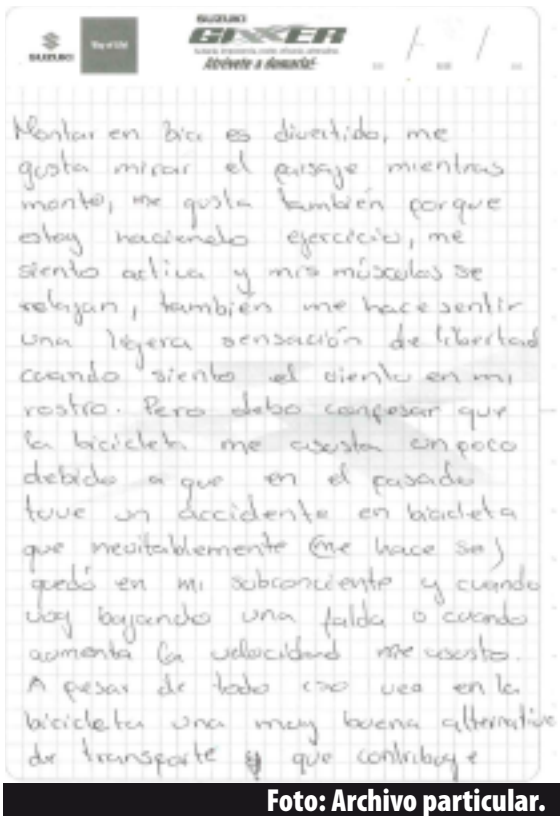 SUZUKI
SUZUKI
Way of Life!
GIXXER
Atrévete a domarla!
Montar en bici es divertido, me
gusta mirar el paisaje mientras
monto, me gusta también porque
estoy haciendo ejercicio, me
siento activa y mis músculos se
relajan, también me hace sentir
una ligera sensación de libertad
cuando siento el viento en mi
rostro. Pero debo confesar que
la bicicleta me asusta un poco
debido a que en el pasado
tuve un accidente en bicicleta
que inevitablemente (me hace se)
quedó en mi subconciente y cuando
voy bajando una falda o cuando
aumenta la velocidad me asusto.
A pesar de todo eso veo en la
bicicleta una muy buena alternativa
de transporte y que contribuye
Foto: Archivo particular.